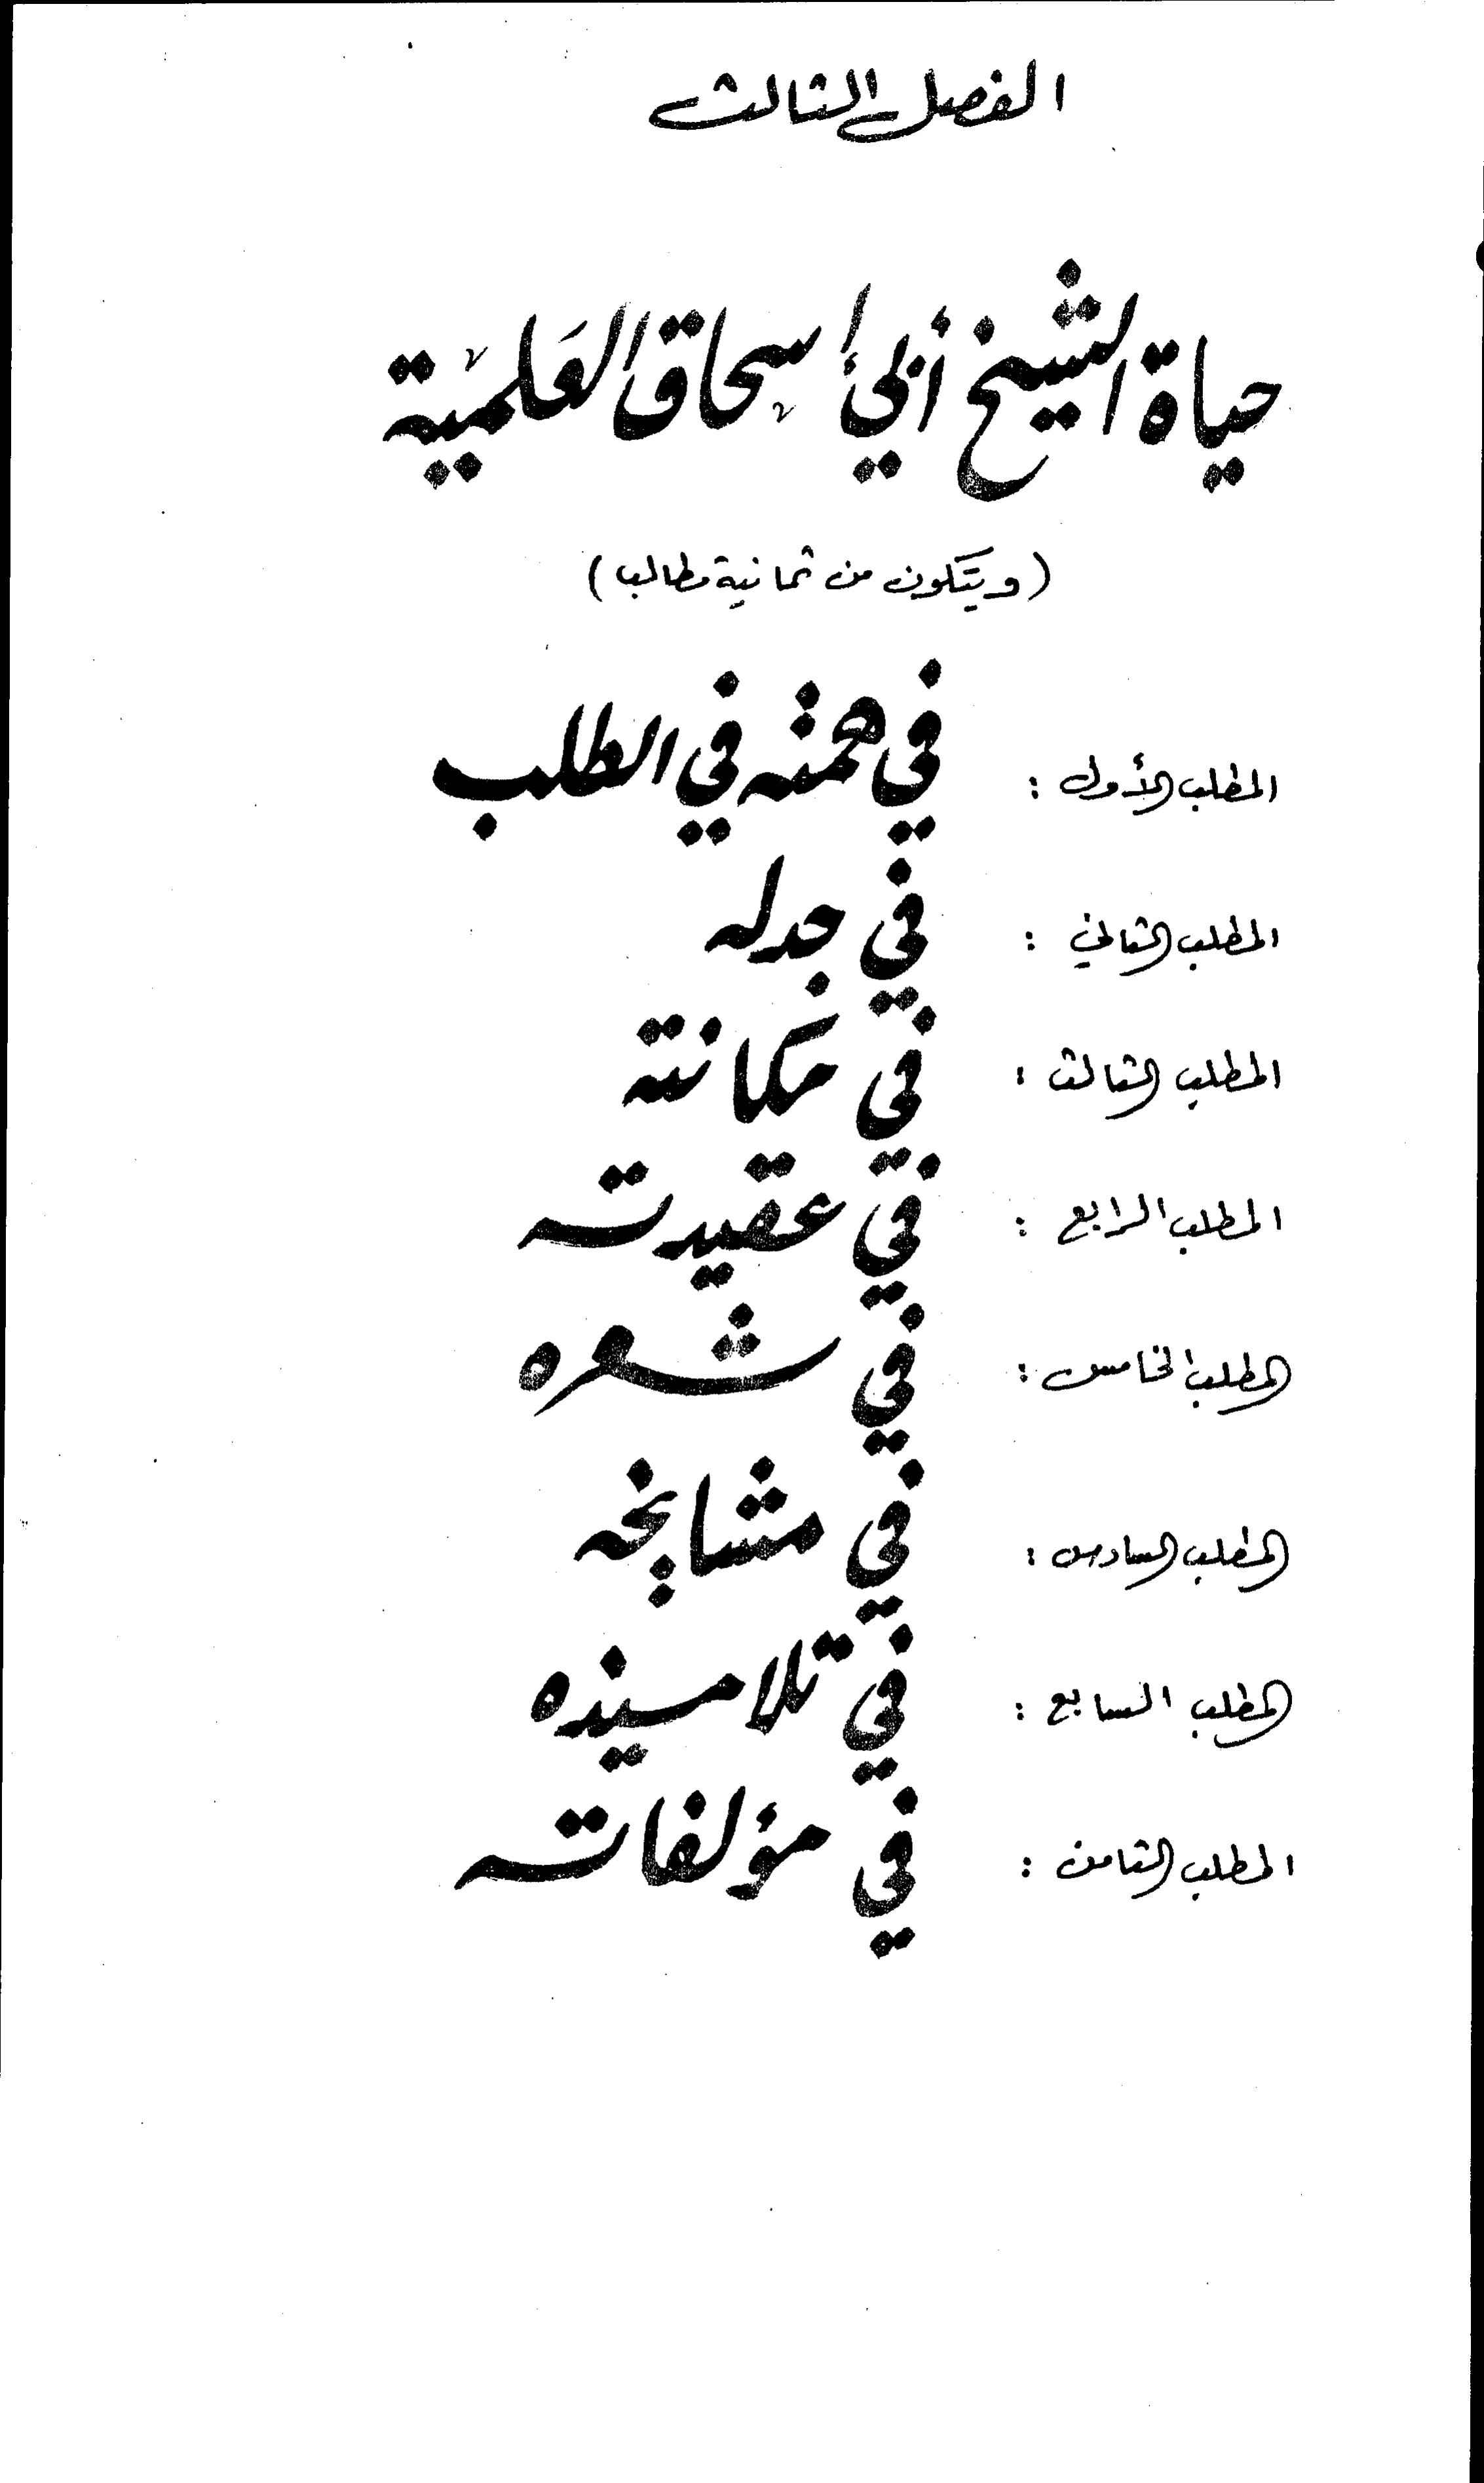 الفصل الثالث
حياة الشيخ أبي إسحاق العلمية
(ويتكون من ثمانية مطالب)
المطلب الأول : في همته في الطلب
المطلب الثاني : في جدله
المطلب الثالث : في مكانته
المطلب الرابع : في عقيدته
المطلب الخامس : في شعره
المطلب السادس : في مشايخه
المطلب السابع : في تلاميذه
المطلب الثامن : في مؤلفاته